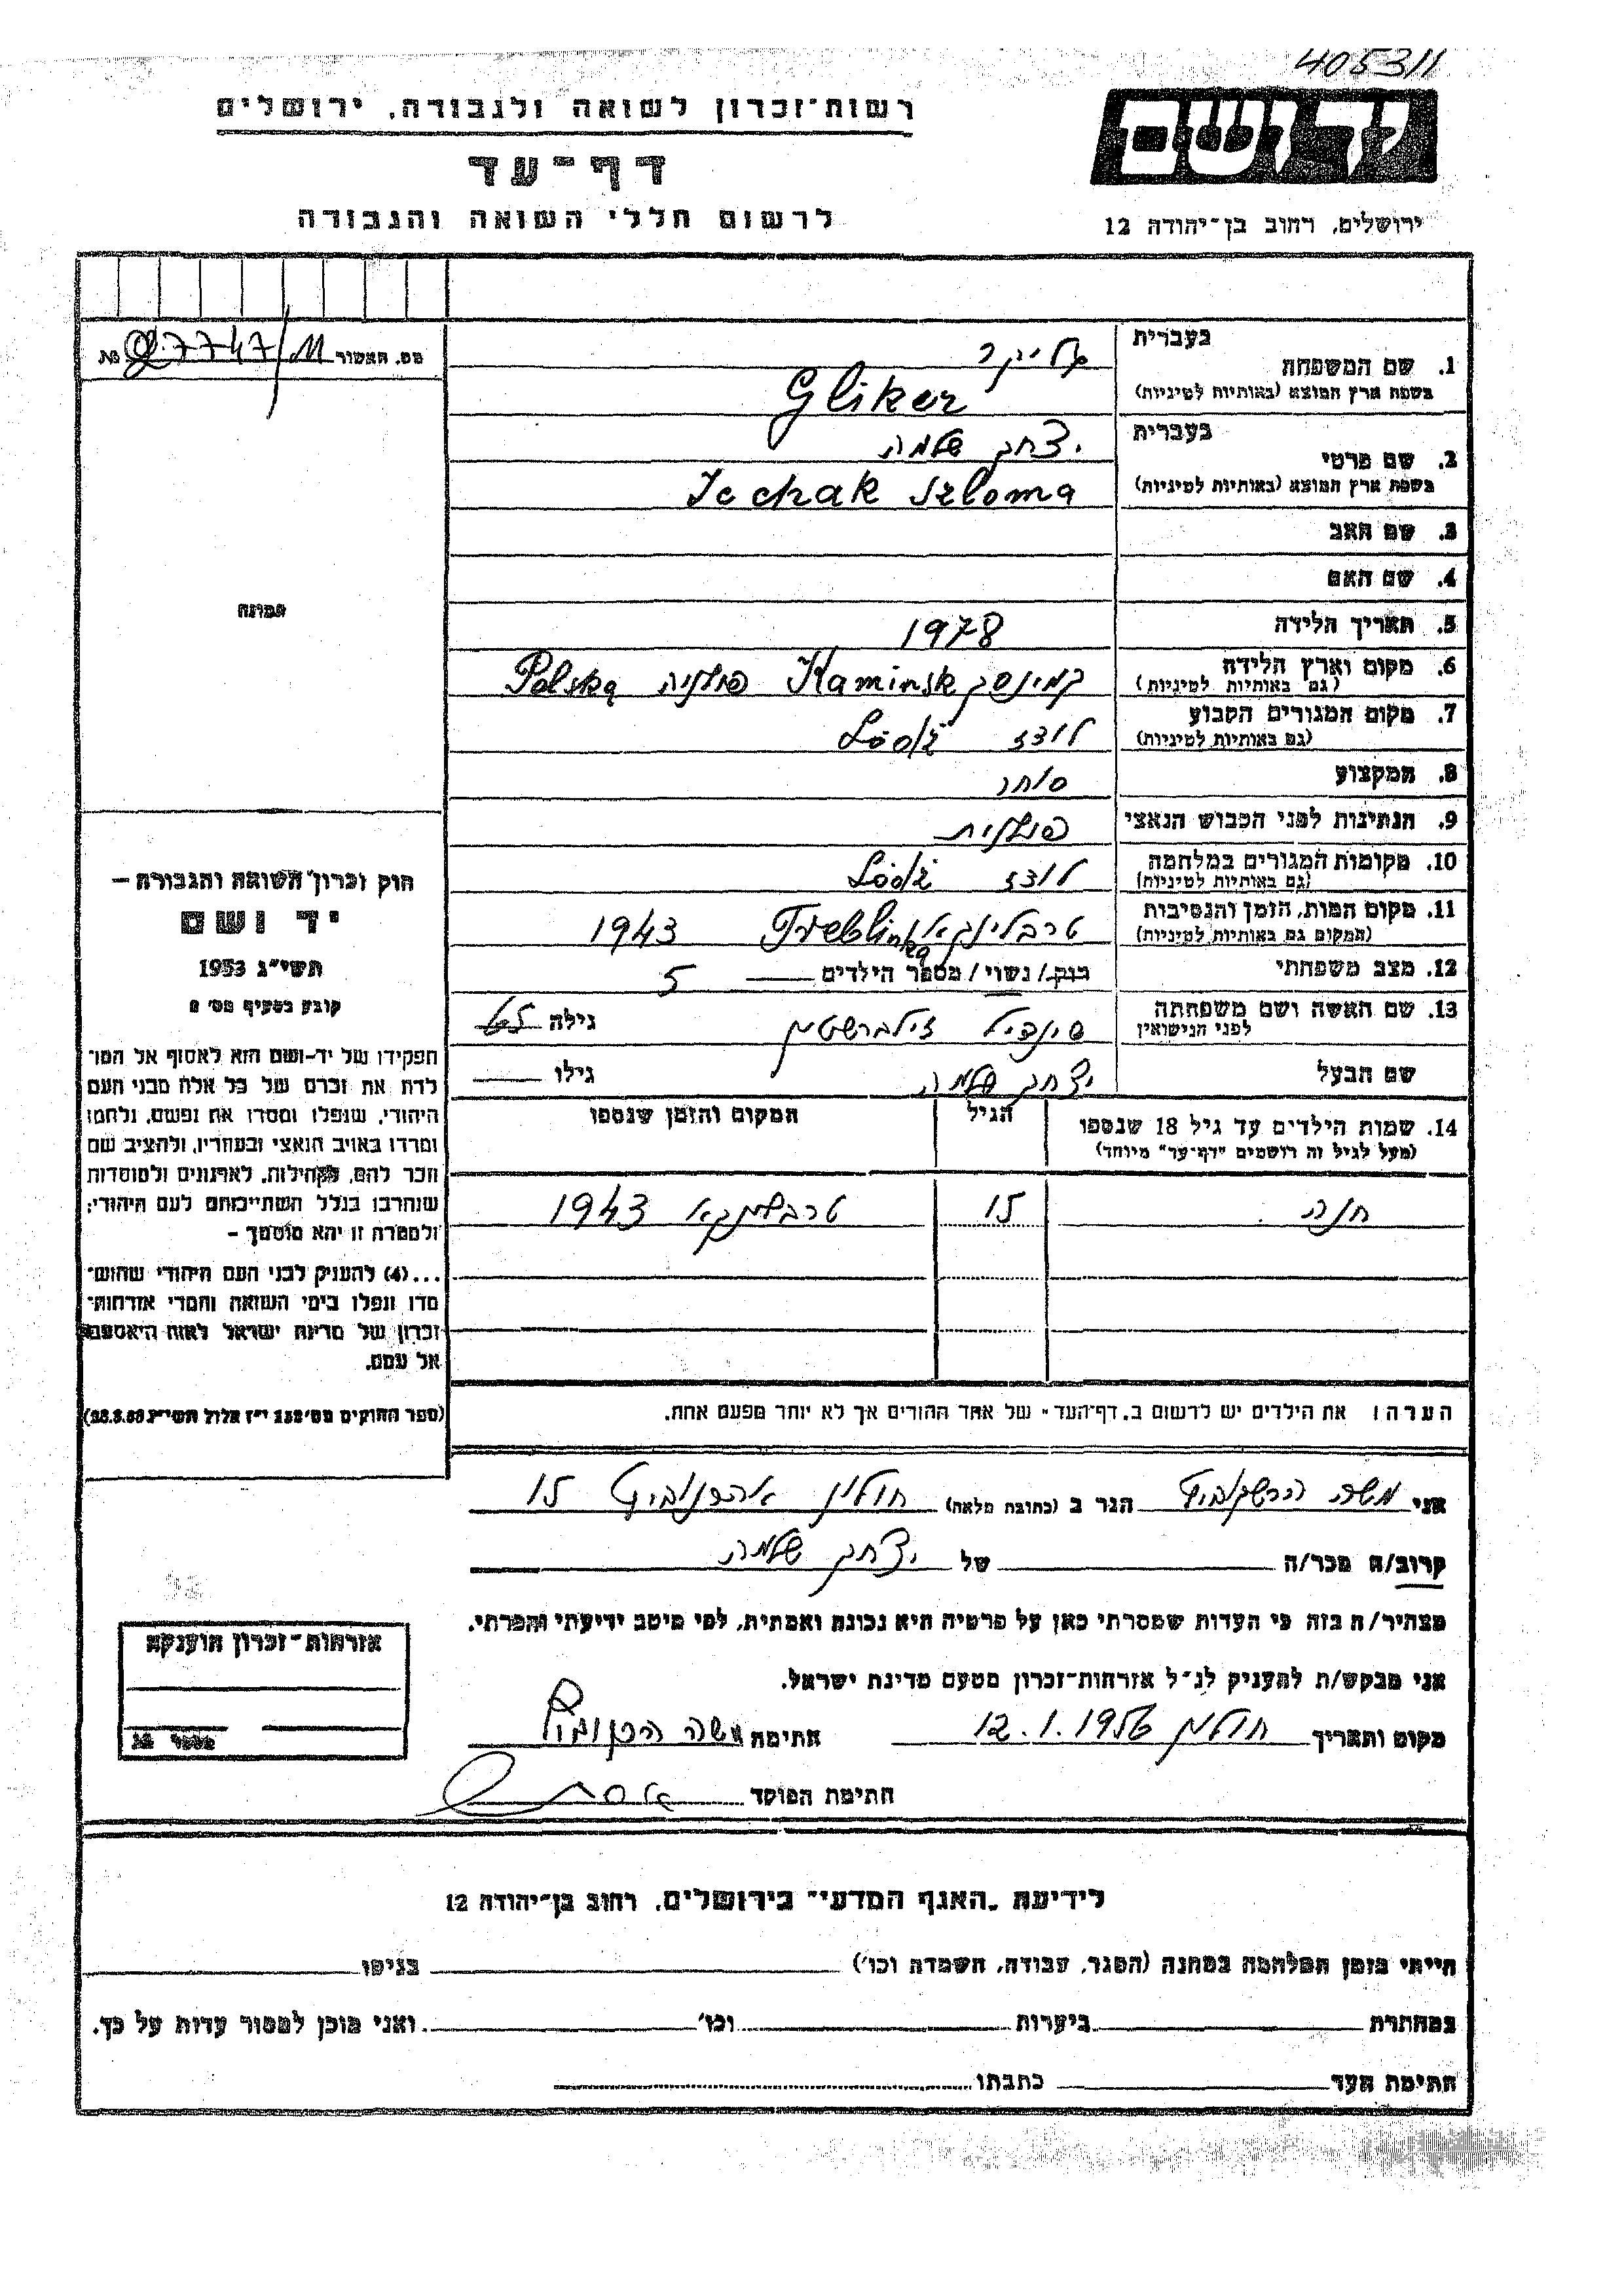 405311
רשות־זכרון לשואה ולגבורה, ירושלים
יד ושם
דף־עד
לרשום חללי השואה והגבורה
ירושלים, רחוב בן־יהודה 12
מס. האשור 27747/11 №
1. שם המשפחה בעברית גליקר
בשפת ארץ המוצא (באותיות לטיניות) Gliker
2. שם פרטי בעברית יצחק שלמה
בשפת ארץ המוצא (באותיות לטיניות) Icchak Szloma
3. שם האב
4. שם האם
תמונה
5. תאריך הלידה 1978
6. מקום וארץ הלידה (גם באותיות לטיניות) קמינסק Kaminsk פולניה Polska
7. מקום המגורים הקבוע (גם באותיות לטיניות) לודז Łódź
8. המקצוע סוחר
9. הנתינות לפני הכבוש הנאצי פולנית
10. מקומות המגורים במלחמה (גם באותיות לטיניות) לודז Łódź
11. מקום המות, הזמן והנסיבות (המקום גם באותיות לטיניות) טרבלינקא Treblinka 1943
12. מצב משפחתי רוק/נשוי/מספר הילדים 5
13. שם האשה ושם משפחתה לפני הנישואין זילברשטיין גילה 65
שם הבעל יצחק שלמה גילו
14. שמות הילדים עד גיל 18 שנספו הגיל המקום והזמן שנספו
(מעל לגיל זה רושמים "דף־עד" מיוחד)
חנה 15 טרבלינקא 1943
הערה: את הילדים יש לרשום ב"דף־העד" של אחד ההורים אך לא יותר מפעם אחת.
חוק זכרון השואה והגבורה —
יד ושם
תשי"ג 1953
קובע בסעיף מס' 2
תפקידו של יד־ושם הוא לאסוף אל המו־
לדת את זכרם של כל אלה מבני העם
היהודי, שנפלו ומסרו את נפשם, נלחמו
ומרדו באויב הנאצי ובעוזריו, ולהציב שם
וזכר להם, לקהילות, לארגונים ולמוסדות
שנחרבו בגלל השתייכותם לעם היהודי;
ולמטרה זו יהא מוסמך —
...(4) להעניק לבני העם היהודי שהוש־
מדו ונפלו בימי השואה והמרי אזרחות־
זכרון של מדינת ישראל לאות היאספם
אל עמם.
(ספר החוקים מס' 132 י"ז אלול תשי"ג 28.8.53)
אני משה הרשקוביץ הגר ב (כתובת מלאה) חולון אהרונוביץ 15
קרוב/ה מכר/ה של יצחק שלמה
מצהיר/ה בזה כי העדות שמסרתי כאן על פרטיה היא נכונה ואמתית, לפי מיטב ידיעתי והכרתי.
אני מבקש/ת להעניק לנ"ל אזרחות־זכרון מטעם מדינת ישראל.
מקום ותאריך חולון 12.1.1956 חתימה משה הרשקוביץ
חתימת הפוקד
אזרחות־זכרון הוענקה
לידיעת "האגף המדעי" בירושלים, רחוב בן־יהודה 12
הייתי בזמן המלחמה במחנה (הסגר, עבודה, השמדה וכו') בגיטו
במחתרת ביערות וכו' ואני מוכן למסור עדות על כך.
חתימת העד כתבתו